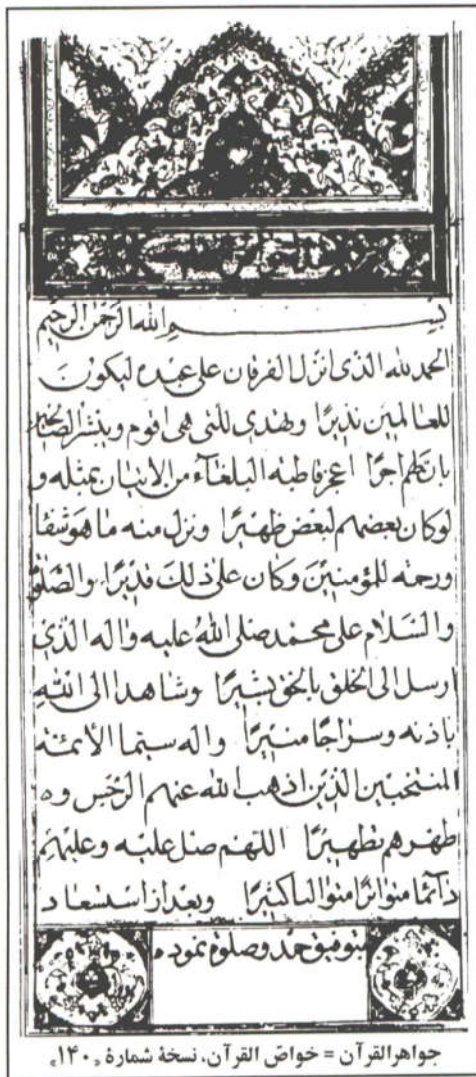 بسم الله الرحمن الرحيم
الحمد لله الذی انزل الفرقان علی عبده لیکون
للعالمین نذیرا ویهدی للتی هی اقوم ویبشر الصالحین
بان لهم اجرا اعجز قاطبة البلغاء من الاتیان بمثله و
لوکان بعضهم لبعض ظهیرا ونزل منه ما هو شفا
ورحمة للمؤمنین وکان علی ذلك قدیرا والصلوة
والسلام علی محمد صلی الله علیه واله الذی
ارسل الی الخلق بالحق بشیرا وشاهدا الی الله
باذنه وسراجا منیرا واله سیما الأئمة
المنتجبین الذین اذهب الله عنهم الرجس و
طهرهم تطهیرا اللهم صل علیه وعلیهم
دآئما متواترا متوالیا کثیرا وبعد از استسعاد
بتوفیق حمد وصلوة نموده
جواهرالقرآن = خواصّ القرآن، نسخهٔ شمارهٔ «۱۴۰»